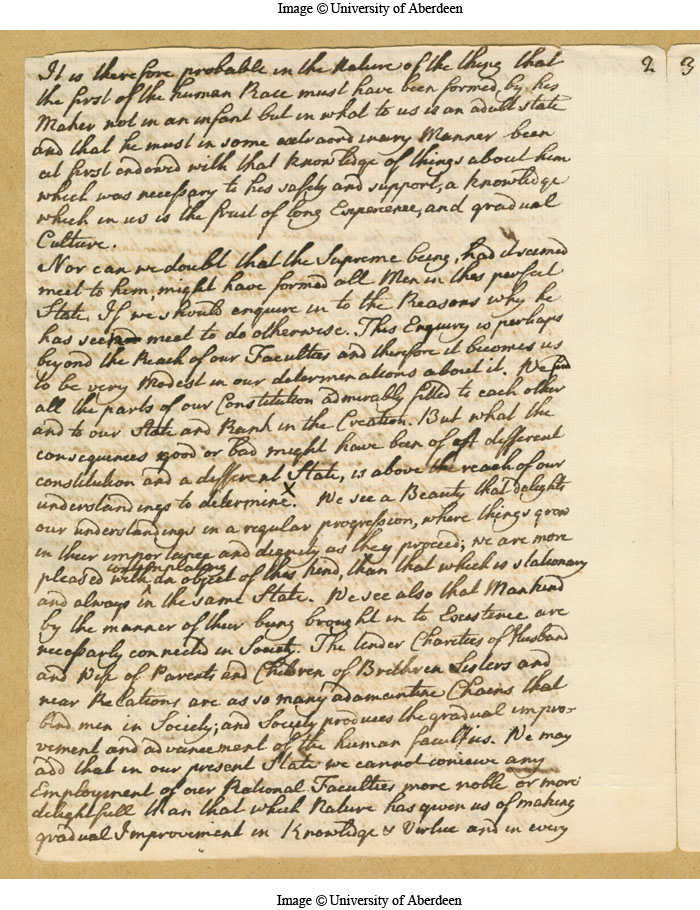 Image © University of Aberdeen
2 3
It is therefore probable in the Nature of the thing that
the first of the human Race must have been formed, by his
Maker not in an infant but in what to us is an adult state
and that he must in some extraordinary Manner been
at first endowed with that knowledge of things about him
which was necessary to his safety and support, a knowledge
which in us is the fruit of long Experience, and gradual
Culture.
Nor can we doubt that the Supreme being, had it seemed
meet to him, might have formed all Men in this perfect
State. If we should enquire in to the Reasons why he
has seen meet to do otherwise. This Enquiry is perhaps
beyond the Reach of our Faculties and therefore it becomes us
to be very Modest in our determinations about it. We find
all the parts of our Constitution admirably fitted to each other
and to our State and Rank in the Creation. But what the
consequences good or bad might have been of a different
constitution and a different State, is above the reach of our
understandings to determine. X We see a Beauty that delights
our understandings in a regular progression, where things grow
in their importance and dignity as they proceed; we are more
pleased with contemplating an object of this kind, than that which is stationary
and always in the same State. We see also that Mankind
by the manner of their being brought in to Existence are
necessarly connected in Society. The tender Charities of Husband
and Wife of Parents and Children of Brethren Sisters and
near Relations are as so many adamantine Chains that
bind men in Society; and Society produces the gradual impro-
vement and advancement of the human faculties. We may
add that in our present State we cannot conceive any
Employment of our Rational Faculties more noble or more
delightfull than that which Nature has given us of making
gradual Improvement in Knowledge & Virtue and in every
Image © University of Aberdeen